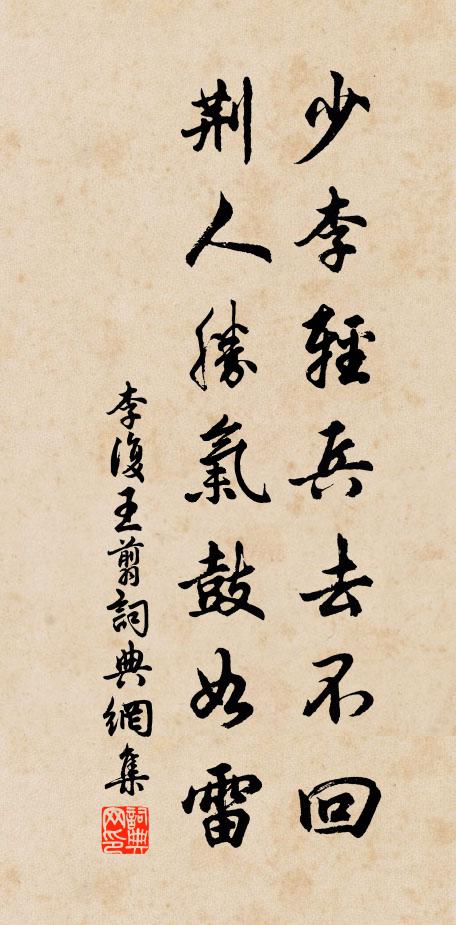 少李輕兵去不回
荆人勝氣鼓如雷
李復王翦詞典網集
詞典网印